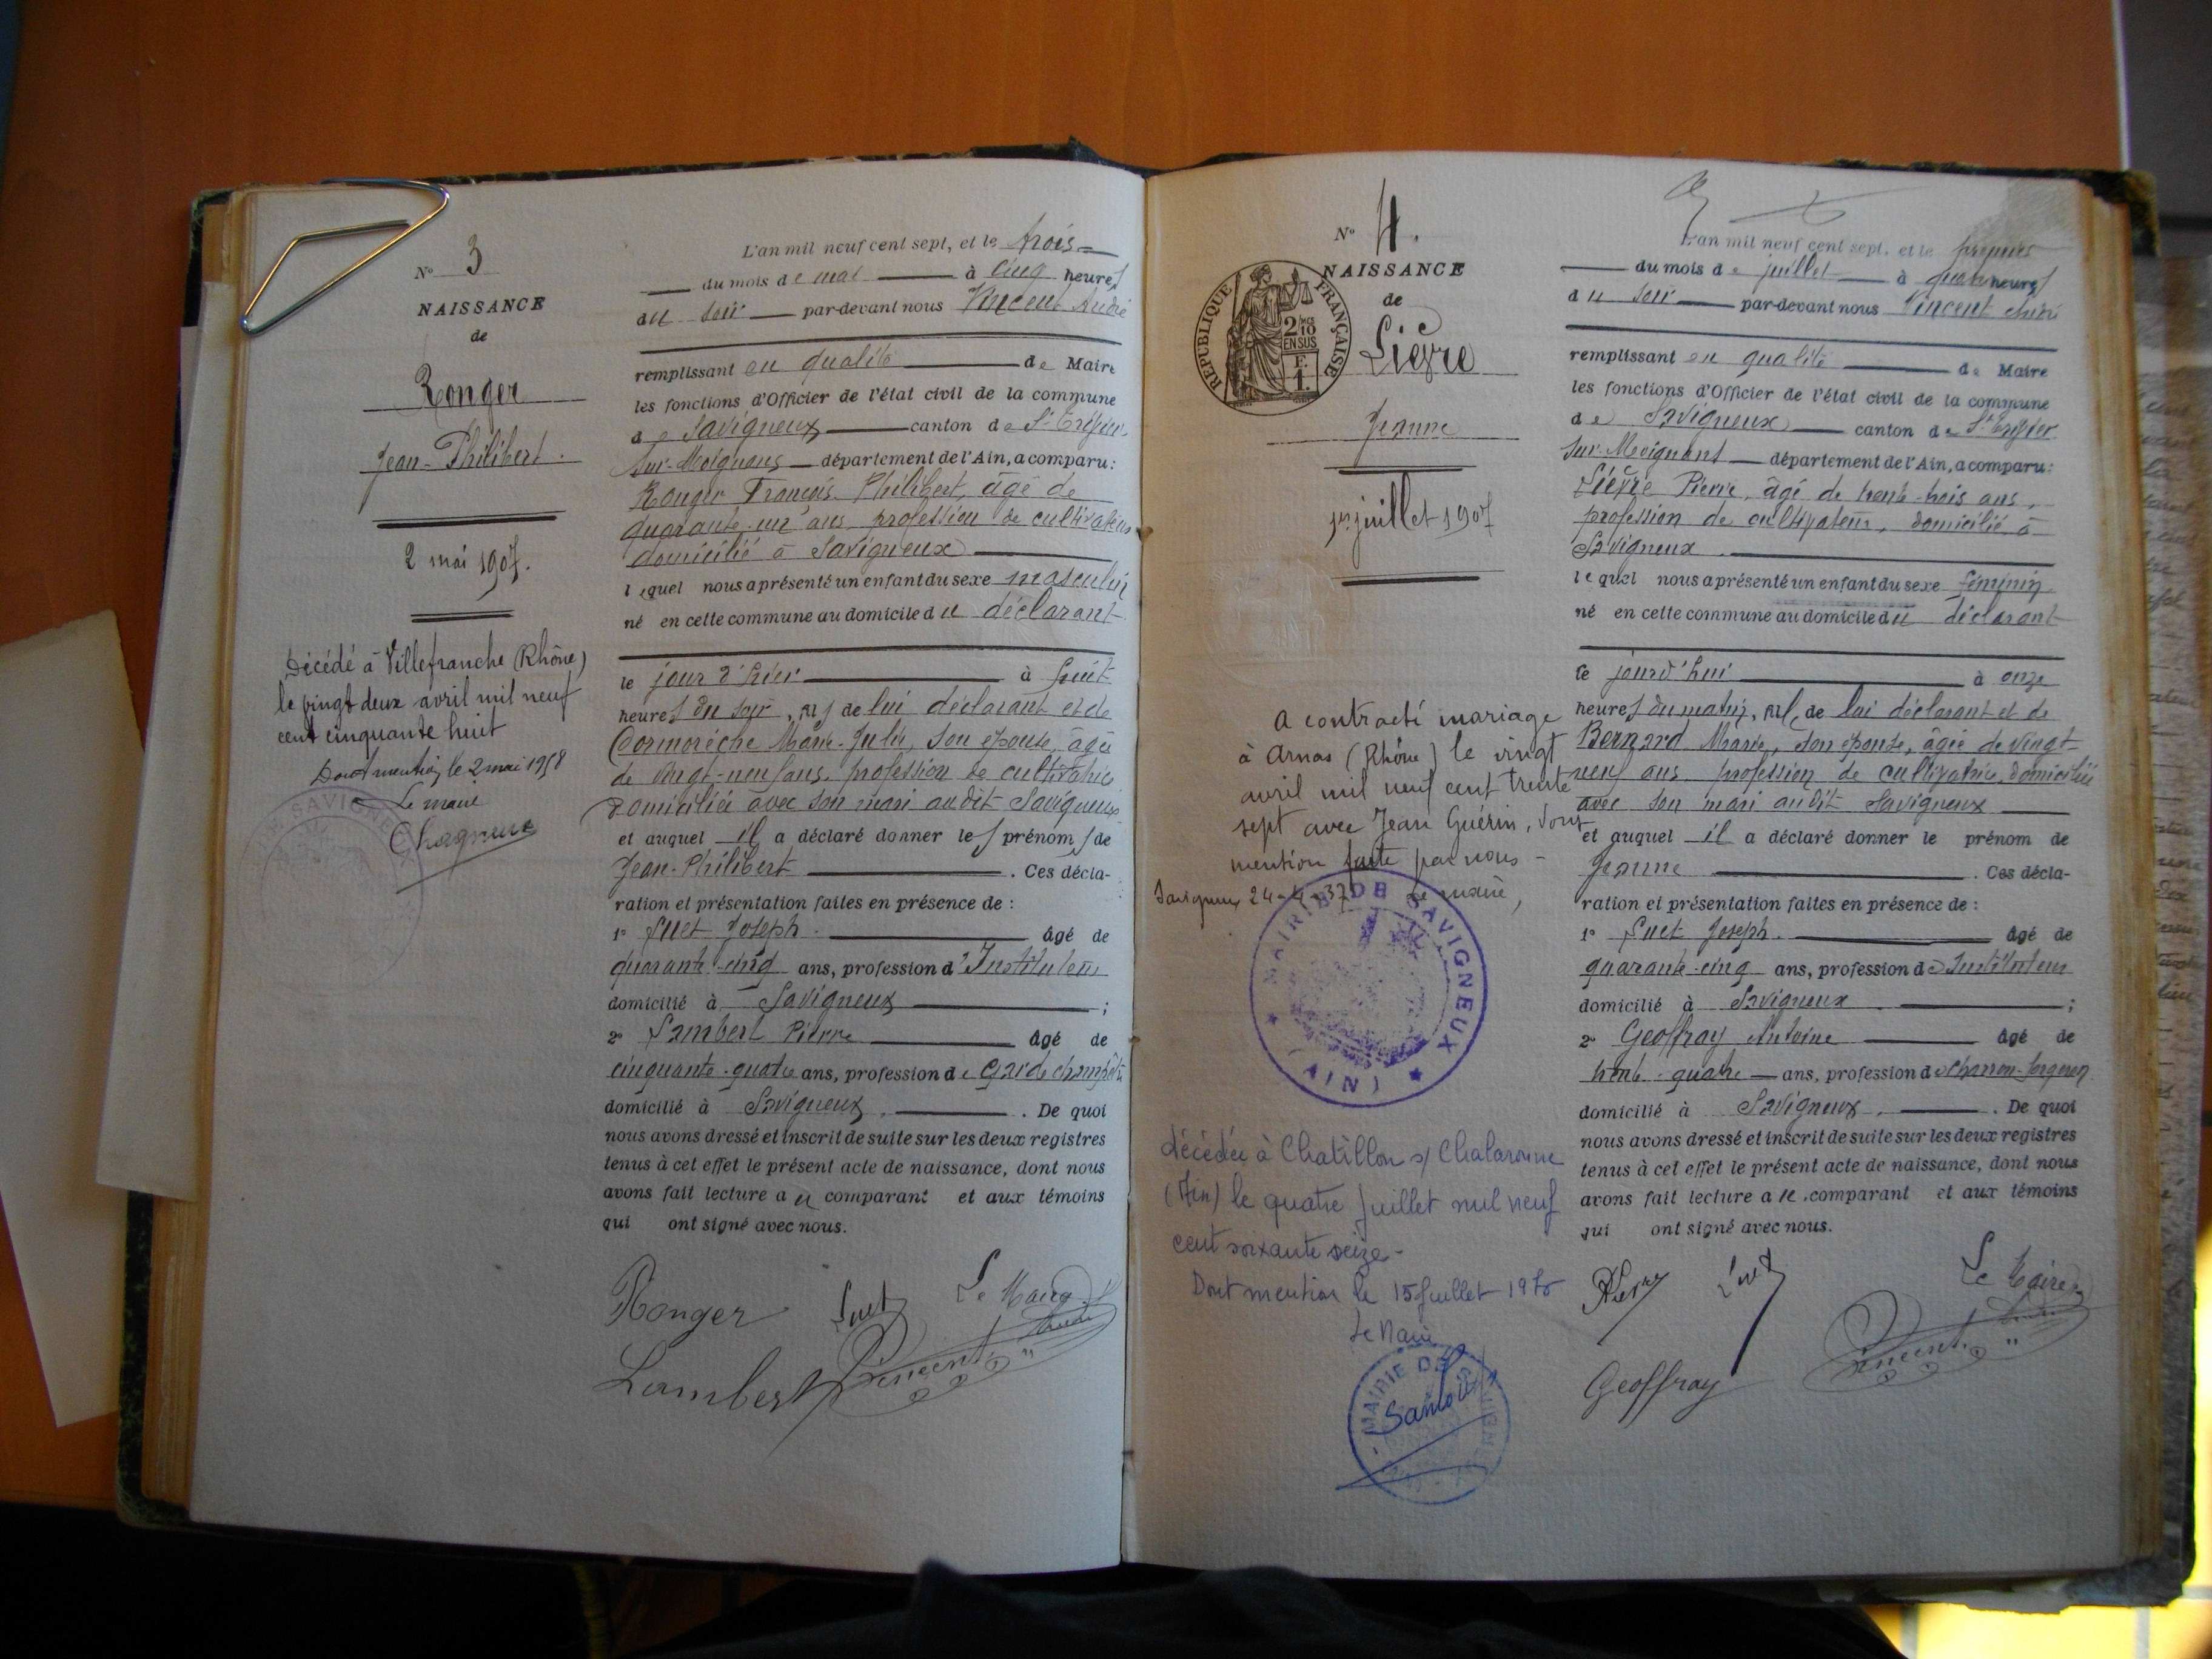 N° 3
NAISSANCE
de
Ronger
Jean-Philibert.
2 mai 1907.
Décédé à Villefranche (Rhône)
le vingt deux avril mil neuf
cent cinquante huit
Dont mention, le 2 mai 1958
Le maire
Chagneux
L'an mil neuf cent sept, et le trois
du mois de mai à cinq heures
du soir par-devant nous Vincent André
remplissant en qualité de Maire
les fonctions d'Officier de l'état civil de la commune
de Savigneux canton de St Trivier
sur-Moignans département de l'Ain, a comparu :
Ronger François Philibert, âgé de
quarante-un ans profession de cultivateur
domicilié à Savigneux
lequel nous a présenté un enfant du sexe masculin
né en cette commune au domicile du déclarant
le jour d'hier à huit
heures du soir, fils de lui déclarant et de
Cormorèche Marie-Julie, son épouse, âgée
de vingt-neuf ans, profession de cultivatrice
domiciliée avec son mari audit Savigneux
et auquel il a déclaré donner les prénoms de
Jean-Philibert. Ces décla-
ration et présentation faites en présence de :
1° Suet Joseph âgé de
quarante-cinq ans, profession d'Instituteur
domicilié à Savigneux ;
2° Lambert Pierre âgé de
cinquante-quatre ans, profession de Garde champêtre
domicilié à Savigneux. De quoi
nous avons dressé et inscrit de suite sur les deux registres
tenus à cet effet le présent acte de naissance, dont nous
avons fait lecture au comparant et aux témoins
qui ont signé avec nous.
Ronger Suet Le Maire
Lambert Vincent André
N° 4.
NAISSANCE
de
Lièvre
Jeanne
1er juillet 1907
RÉPUBLIQUE FRANÇAISE
2/10 EN SUS
F. 1.
A contracté mariage
à Arnas (Rhône) le vingt
avril mil neuf cent trente
sept avec Jean Guérin, dont
mention faite par nous -
Savigneux 24-4-37 Le maire,
MAIRIE DE SAVIGNEUX (AIN)
décédée à Chatillon s/ Chalaronne
(Ain) le quatre juillet mil neuf
cent soixante seize -
Dont mention le 15 juillet 1976
Le Maire
MAIRIE DE
L'an mil neuf cent sept, et le premier
du mois de juillet à quatre heures
du soir par-devant nous Vincent André
remplissant en qualité de Maire
les fonctions d'Officier de l'état civil de la commune
de Savigneux canton de St Trivier
sur-Moignans département de l'Ain, a comparu :
Lièvre Pierre, âgé de trente-trois ans,
profession de cultivateur, domicilié à
Savigneux
lequel nous a présenté un enfant du sexe féminin
né en cette commune au domicile du déclarant
le jourd'hui à onze
heures du matin, fille de lui déclarant et de
Bernard Marie, son épouse, âgée de vingt-
neuf ans profession de cultivatrice, domiciliée
avec son mari audit Savigneux
et auquel il a déclaré donner le prénom de
Jeanne. Ces décla-
ration et présentation faites en présence de :
1° Suet Joseph âgé de
quarante-cinq ans, profession d'Instituteur
domicilié à Savigneux ;
2° Geoffray Antoine âgé de
trente-quatre ans, profession de charron-forgeron
domicilié à Savigneux. De quoi
nous avons dressé et inscrit de suite sur les deux registres
tenus à cet effet le présent acte de naissance, dont nous
avons fait lecture au comparant et aux témoins
qui ont signé avec nous.
Suet Le Maire
Geoffray Vincent